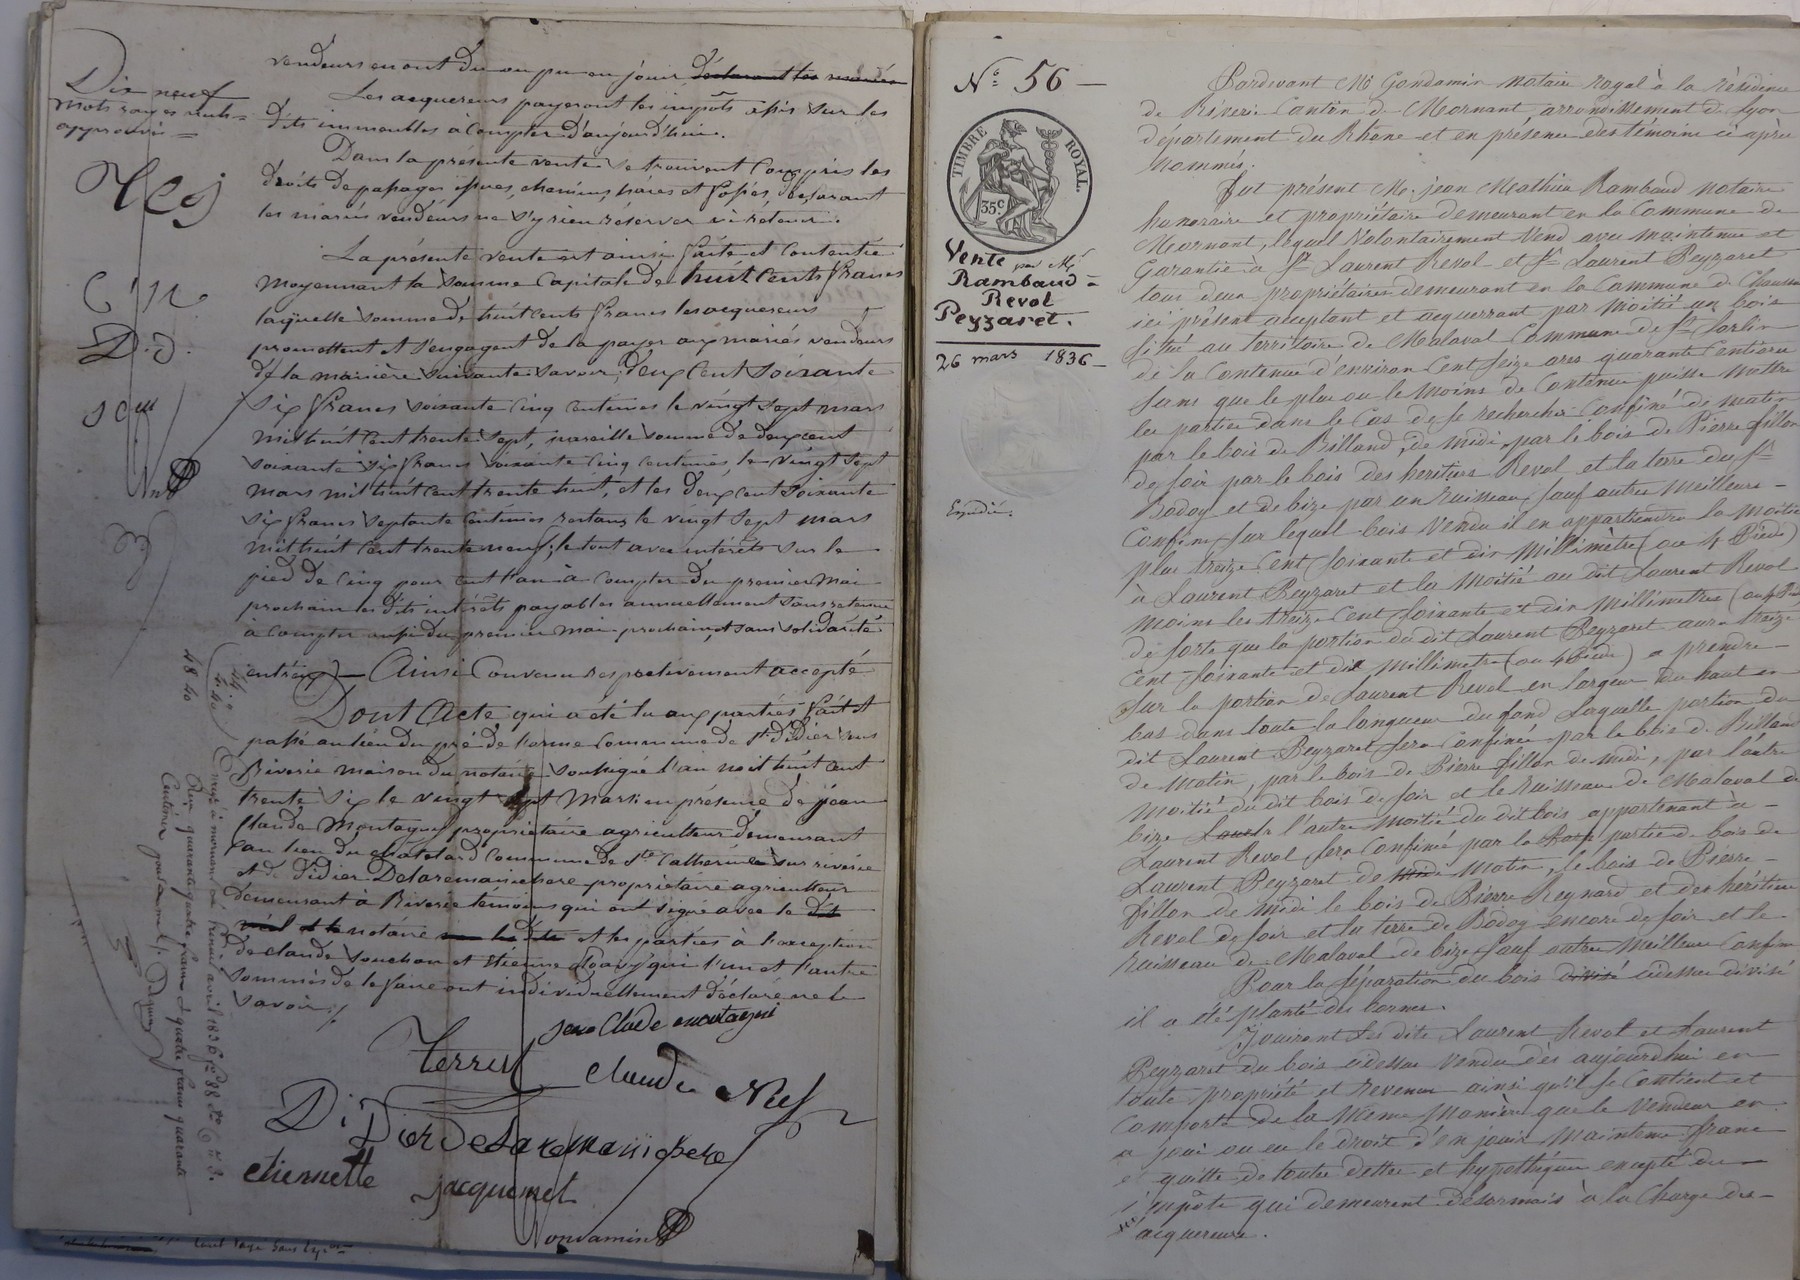 Dix neuf
mots rayés nuls
approuvés =
vendeurs en ont du ou pu en jouir déclarant les mariés
Les acquereurs payeront les impôts assis sur les
dits immeubles à compter d'aujourd'hui.
Dans la présente vente se trouvent compris les
droits de passages, issues, chemins, haies et fossés, déclarant
les mariés vendeurs ne s'y rien réserver ni retenir.
La présente vente est ainsi faite et consentie
moyennant la somme capitale de huit cents francs
laquelle somme de huit cents francs les acquereurs
promettent et s'engagent de la payer aux mariés vendeurs
de la manière suivante savoir; deux cent soixante
six francs soixante cinq centimes le vingt sept mars
mil huit cent trente sept, pareille somme de deux cent
soixante six francs soixante cinq centimes, le vingt sept
mars mil huit cent trente huit, et les deux cent soixante
six francs septante centimes restans le vingt sept mars
mil huit cent trente neuf; le tout avec intérêts sur le
pied de cinq pour cent l'an à compter du premier mai
prochain les dits intérêts payables annuellement sans retenue
à compter aussi du premier mai prochain, et sans solidarité
entr'eux — Ainsi convenu respectivement accepté
Dont Acte qui a été lu aux parties fait et
passé au lieu du pré de l'orme commune de St Didier sous
Riverie maison du notaire soussigné l'an mil huit cent
trente six le vingt sept Mars en présence de jean
Claude Montagny propriétaire agriculteur demeurant
au lieu du châtelard commune de Ste Catherine sur riverie
et de Didier Delaremanichere propriétaire agriculteur
demeurant à Riverie témoins qui ont signé avec le dit
notaire et les parties à l'exception
de claude souchon et Etienne qui l'un et l'autre
sommés de le faire ont individuellement déclaré ne le
savoir ./.
jean Clode montagni
Terrer
claude
Didier Delaremanichere
etiennette jacquemet
Gondamin
44 "
4.40
48 40
N° 56 —
TIMBRE ROYAL.
35c
Vente par Me
Rambaud =
Revol
Peyzaret.
26 mars 1836 —
Expédié.
Pardevant Me Gondamin notaire royal à la résidence
de Riverie canton de Mornant, arrondissement de Lyon
département du Rhône et en présence des témoins ci après
nommés.
Fut présent Me. jean Mathieu Rambaud notaire
honoraire et propriétaire demeurant en la Commune de
Mornant, lequel volontairement vend avec maintenue et
Garantie à Sr Laurent Revol et Sr Laurent Peyzaret
tous deux propriétaires demeurant en la Commune de
ici présent acceptant et acquerrant par moitié un bois
situé au territoire de Malaval Commune de St Sorlin
de la contenue d'environ cent seize ares quarante centiares
sans que le plus ou le moins de contenue puisse mettre
les parties dans le cas de se rechercher confiné de matin
par le bois de Billand, de midi par le bois de Pierre fillon
de soir par le bois des heritiers Revol et la terre du Sr
Boday et de bize par un ruisseau, sauf autres meilleurs —
Confins, sur lequel bois vendu il en appartiendra la moitié
plus treize cent soixante et dix Millimètre (ou 4 Pieds)
à Laurent Peyzaret et la moitié au dit Laurent Revol
moins les treize cent soixante et dix millimètres (ou 4 Pieds)
de sorte que la portion du dit Laurent Peyzaret aura treize
cent soixante et dix millimètre (ou 4 Pieds) a prendre —
sur la portion de Laurent Revol en largeur du haut en
bas dans toute la longueur du fond laquelle portion du
dit Laurent Peyzaret sera confinée par le bois de Billand
de matin, par le bois de Pierre fillon de midi, par l'autre
moitié du dit bois de soir et le ruisseau de Malaval de
bize l'autre moitié du dit bois appartenant à —
Laurent Revol sera confiné par la partie de bois de
Laurent Peyzaret de matin, le bois de Pierre —
fillon de midi le bois de Pierre Reynard et des héritiers
Revol de soir et la terre de Boday encore de soir et le
ruisseau de Malaval de bize sauf autres meilleurs confins
Pour la séparation du bois divisé cidessus divisé
il a été planté des bornes.
Jouiront les dits Laurent Revol et Laurent
Peyzaret du bois cidessus vendu dès aujourdhui en
toute propriété et revenu ainsi qu'il se contient et
comporte de la même manière que le vendeur en
a joui ou eu le droit d'en jouir maintenu franc
et quitte de toutes dettes et hypothèques excepté du —
l'impôts qui demeurent désormais à la charge des —
acquereurs.